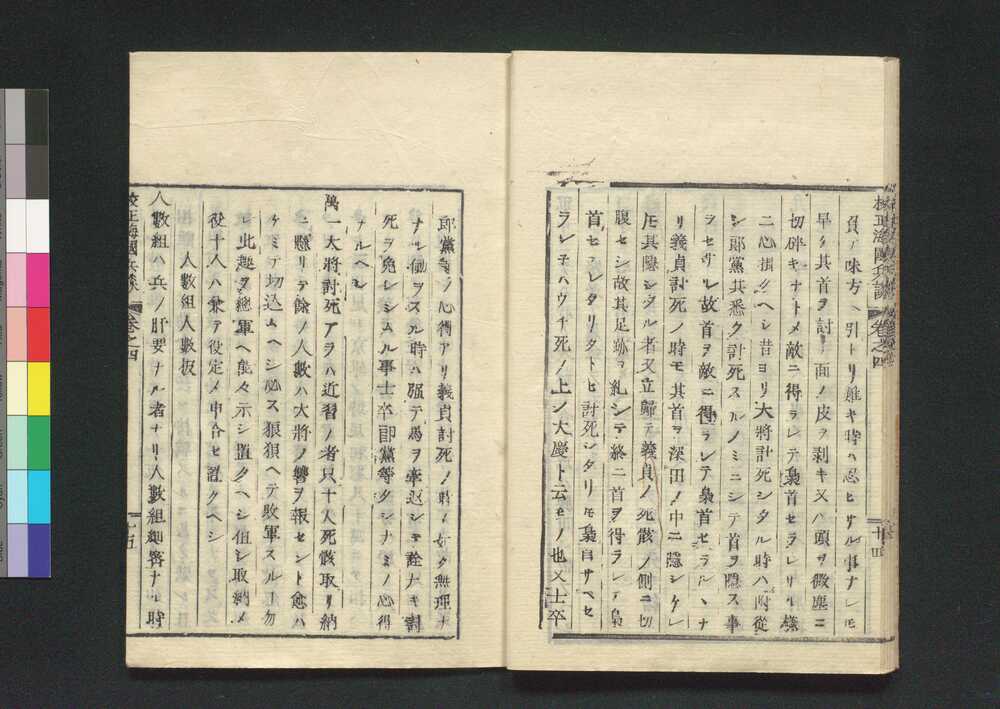 貟テ味方ヘ引トリ難キ時ハ忍ヒサル事ナレ𪜈
早ク其首ヲ討テ面ノ皮ヲ剥キ又ハ頭ヲ微塵ニ
切碎キナトメ敵ニ得ラレテ梟首セラレサル樣
ニ心掛クヘシ昔ヨリ大將討死シタル時ハ附從
シ郎黨共悉ク討死スルノミニシテ首ヲ隱ス事
ヲセサル故首ヲ敵ニ得ラレテ梟首セラルヽナ
リ義貞討死ノ時モ其首ヲ深田ノ中ニ隱シケレ
𪜈其隱シタル者又立歸テ義貞ノ死骸ノ側ニ切
腹セシ故其足跡ヲ糺シテ終ニ首ヲ得ラレテ梟
首セラレタリタトヒ討死シタリ𪜈梟首サヘセ
ラレテハウチ死ノ上ノ大慶ト云モノ也又士卒
校正海國兵談 卷之四 十四
郎黨等ノ心得アリ義貞討死ノ時ノ如ク無理ナ
ナル働ヲスル時ハ强テ馬ヲ牽返シテ詮ナキ討
死ヲ免レシムル事士卒郎黨等タシナミノ心得
ナルヘシ
萬一大將討死アラハ近習ノ者只十人死骸取リ納
ニ懸リテ餘ノ人數ハ大將ノ讐ヲ報セント愈ハ
ケミテ切込ムヘシ必ス狼狽ヘテ敗軍スルヿ勿
レ此趣ヲ總軍ヘ能々示シ置クヘシ但シ取納メ
役十人ハ兼テ役定メ申合セ置クヘシ
人數組人數扱
人數組ハ兵ノ肝要ナル者ナリ人數組細密ナル時
校正海國兵談 卷之四 十五